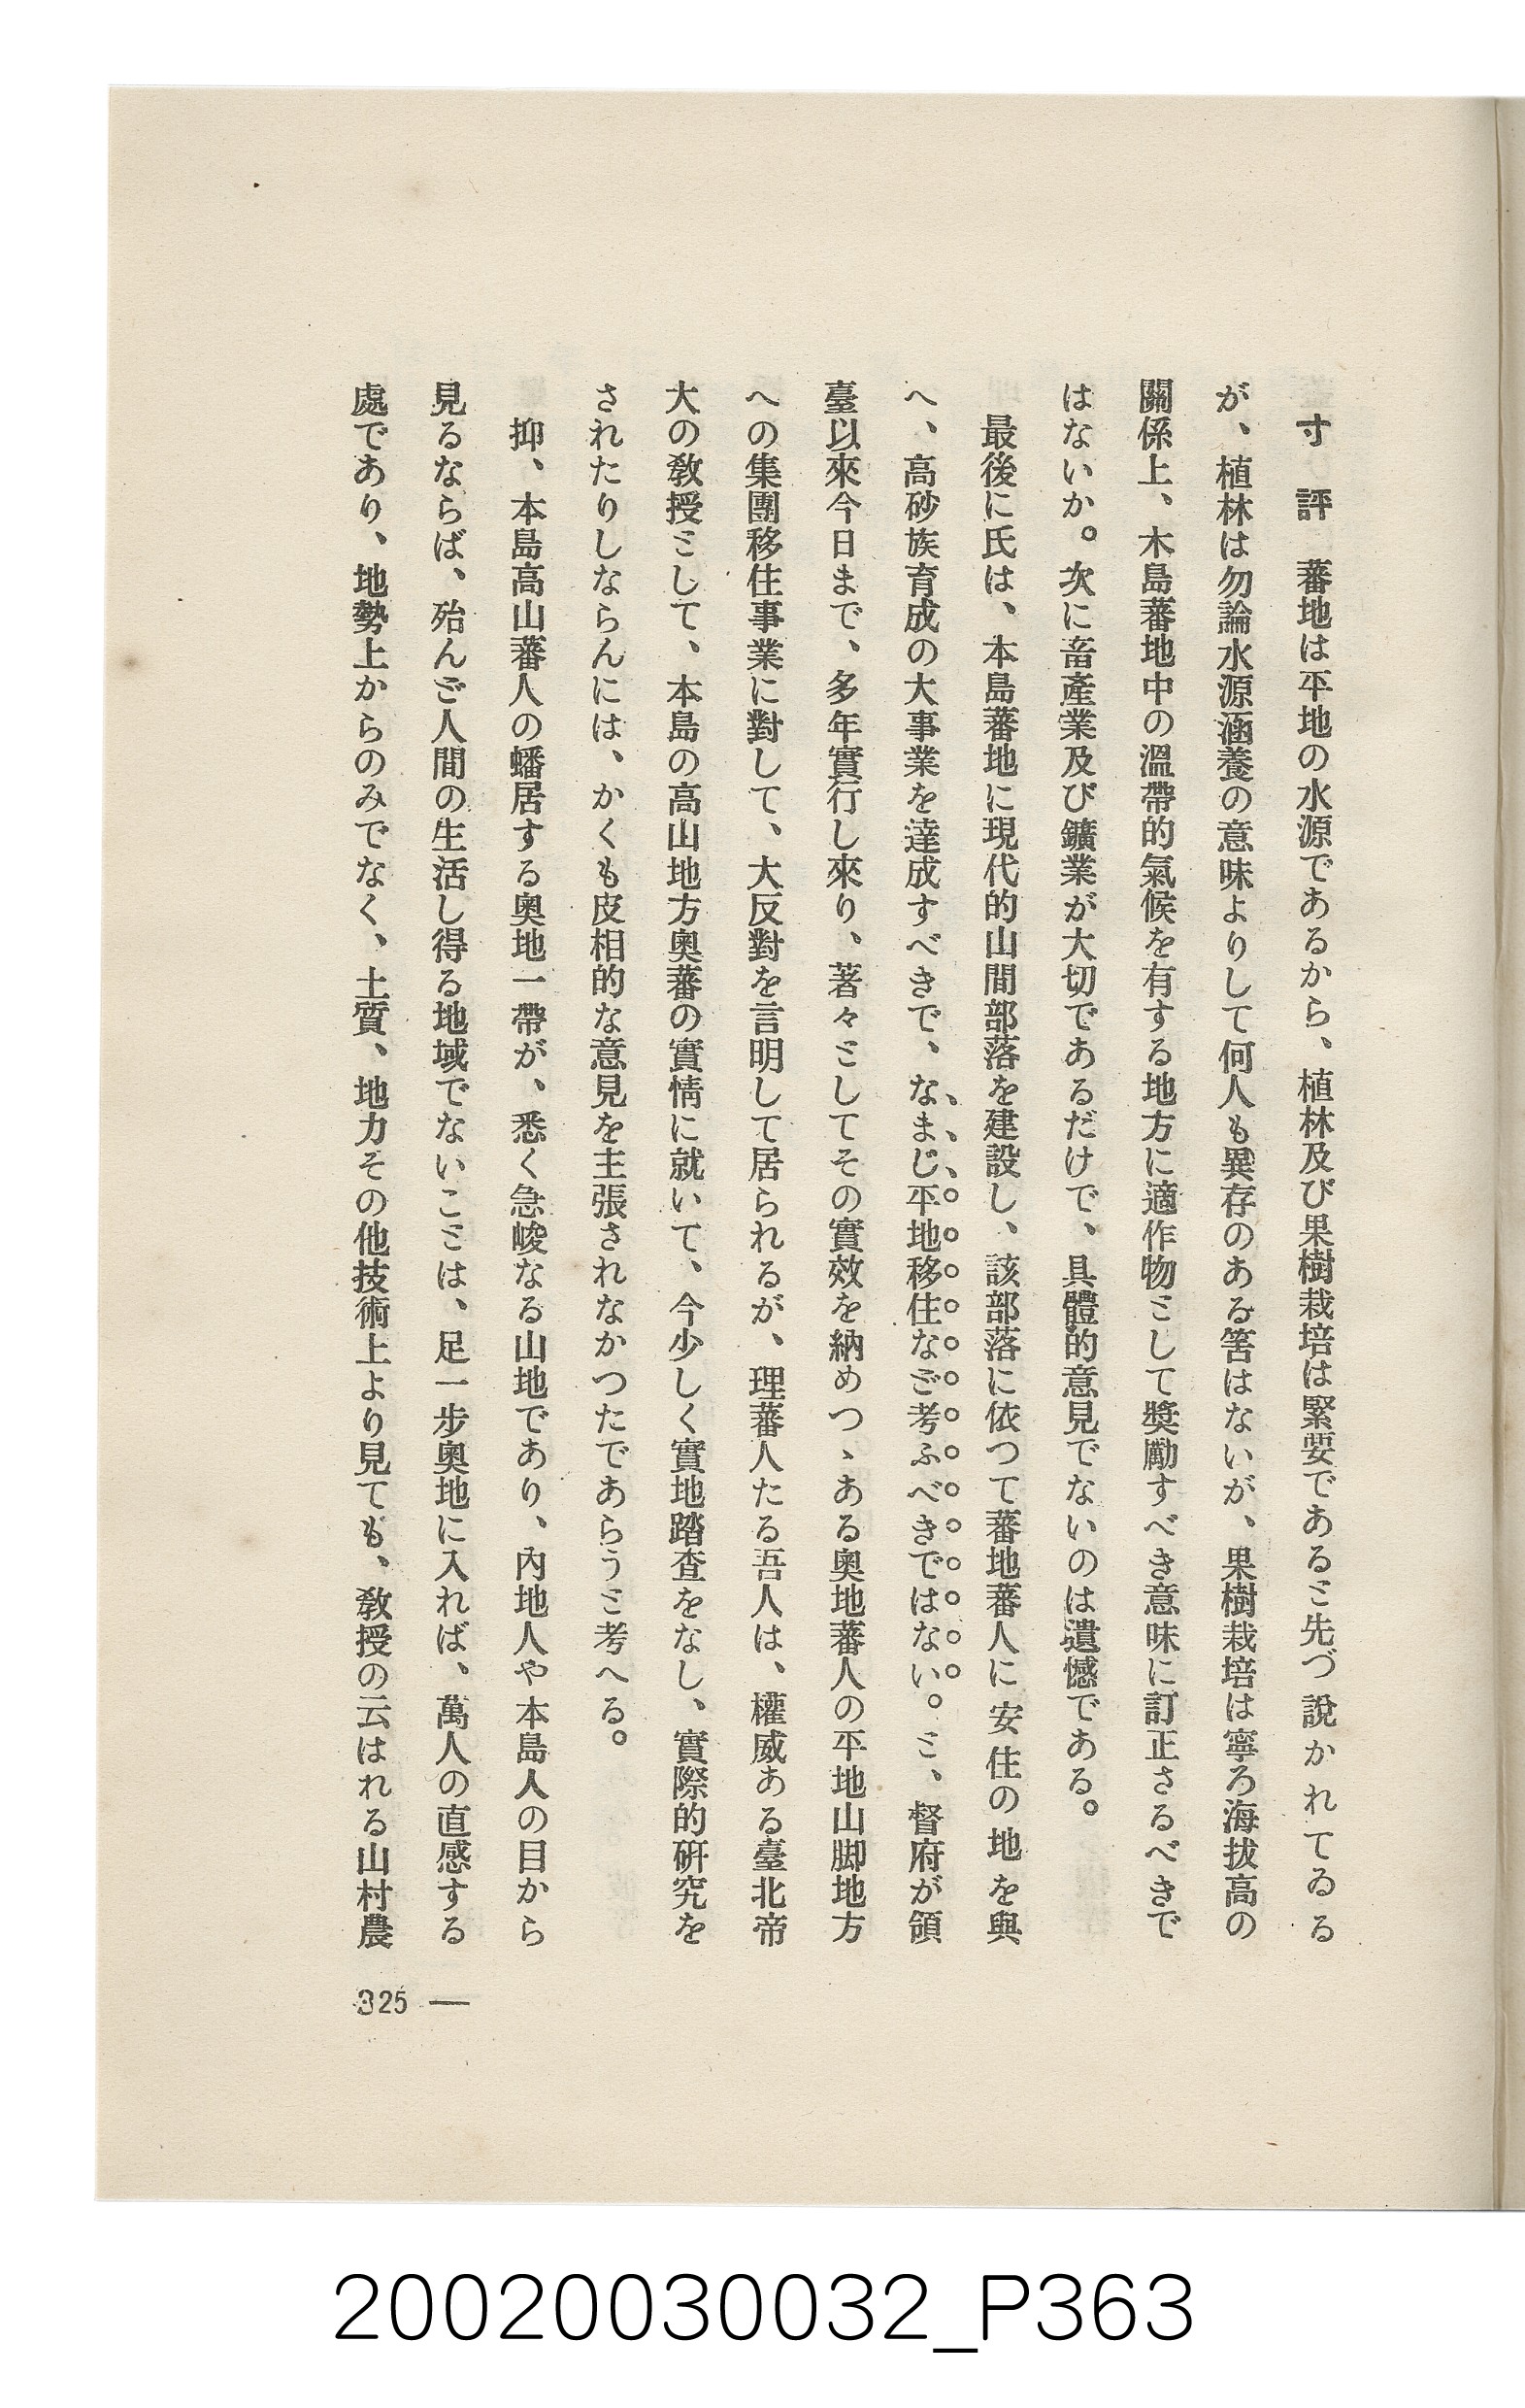 寸　評　蕃地は平地の水源であるから、植林及び果樹栽培は緊要であるミ先づ說かれてゐる
が、植林は勿論水源涵養の意味よりして何人も異存のある筈はないが、果樹栽培は寧ろ海拔高の
關係上、木島蕃地中の溫帶的氣候を有する地方に適作物ミして奬勵すべき意味に訂正さるべきで
はないか。次に畜產業及び鑛業が大切であるだけで、具體的意見でないのは遺憾である。
最後に氏は、本島蕃地に現代的山間部落を建設し、該部落に依つて蕃地蕃人に安住の地を與
へ、高砂族育成の大事業を達成すべきで、なまじ平地移住なご考ふべきではない。ミ、督府が領
臺以來今日まで、多年實行し來り、著々ミしてその實效を納めつゝある奧地蕃人の平地山脚地方
への集團移住事業に對して、大反對を言明して居られるが、理蕃人たる吾人は、權威ある臺北帝
大の敎授ミして、本島の高山地方奧蕃の實情に就いて、今少しく實地踏査をなし、實際的硏究を
されたりしならんには、かくも皮相的な意見を主張されなかつたであらうミ考へる。
抑、本島高山蕃人の蟠居する奧地一帶が、悉く急峻なる山地であり、內地人や本島人の目から
見るならば、殆んご人間の生活し得る地域でないこミは、足一步奧地に入れば、萬人の直感する
處であり、地勢上からのみでなく、土質、地力その他技術上より見ても、敎授の云はれる山村農
325 —
20020030032_P363